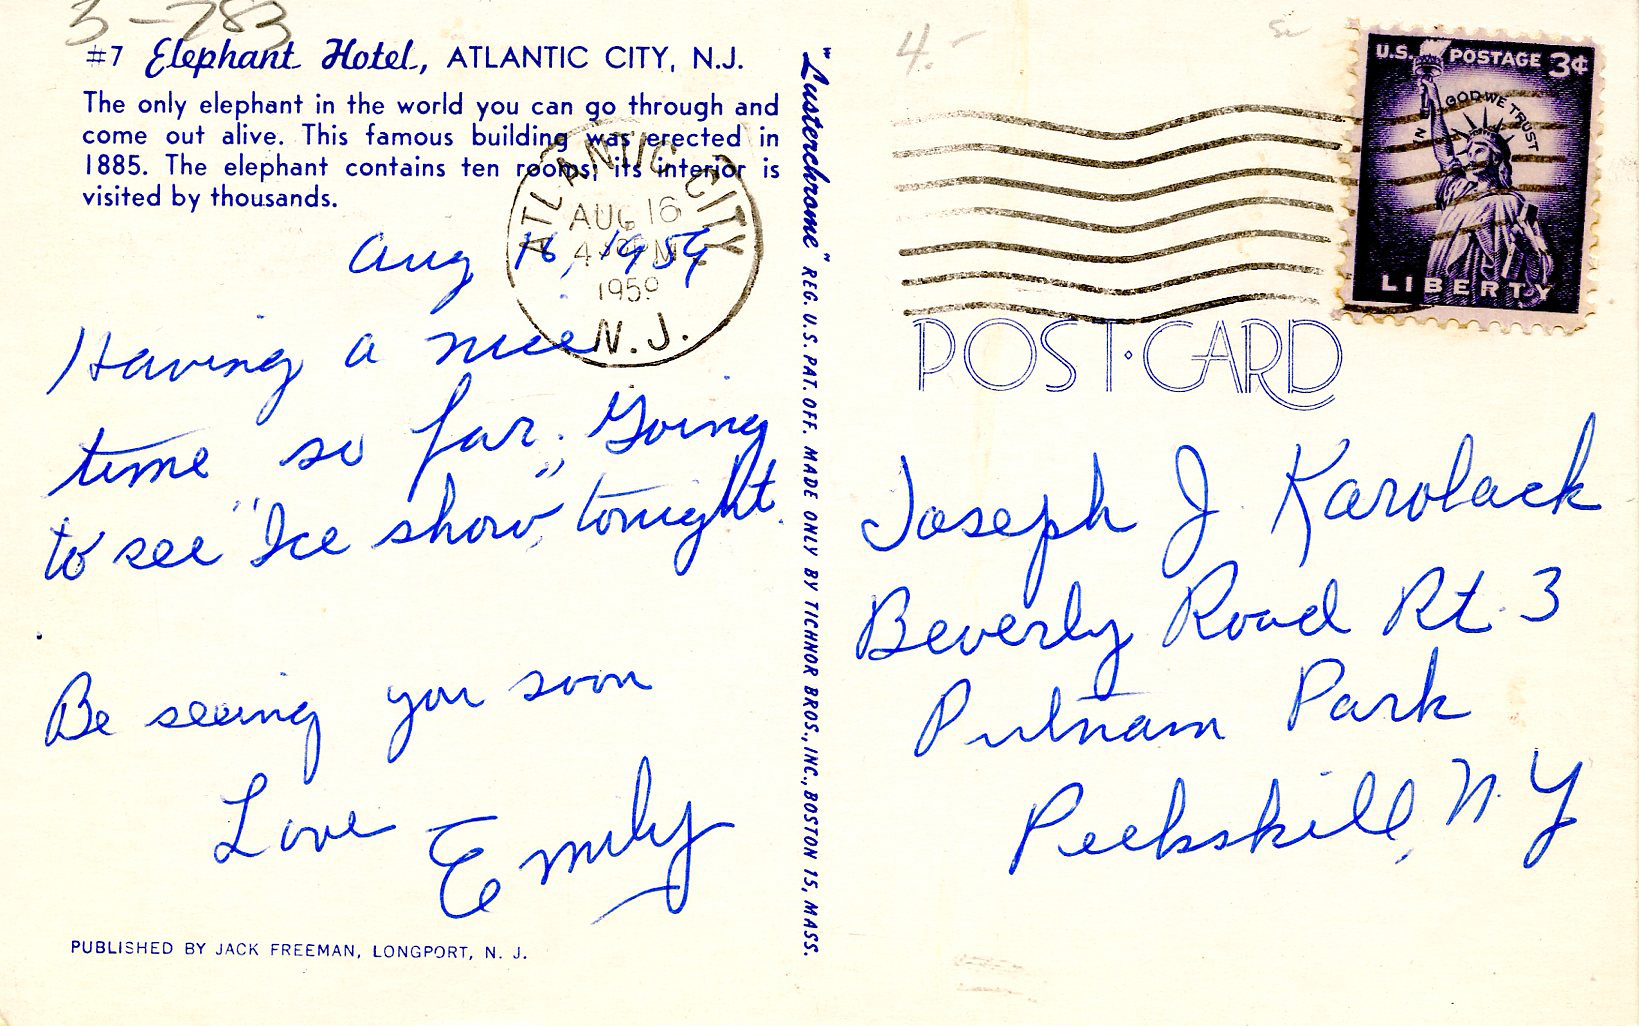 3-783
#7 Elephant Hotel, ATLANTIC CITY, N.J.
The only elephant in the world you can go through and
come out alive. This famous building was erected in
1885. The elephant contains ten rooms; its interior is
visited by thousands.
Aug 16, 1959
Having a nice
time so far. Going
to see "Ice show," tonight.
Be seeing you soon
Love Emily
PUBLISHED BY JACK FREEMAN, LONGPORT, N. J.
ATLANTIC CITY
AUG 16
PM
1959
N.J.
"Lusterchrome" REG. U.S. PAT. OFF. MADE ONLY BY TICHNOR BROS., INC., BOSTON 15, MASS.
4.-
U.S. POSTAGE 3¢
IN GOD WE TRUST
LIBERTY
POST·CARD
Joseph J Karolack
Beverly Road Rt. 3
Putnam Park
Peekskill, N. Y